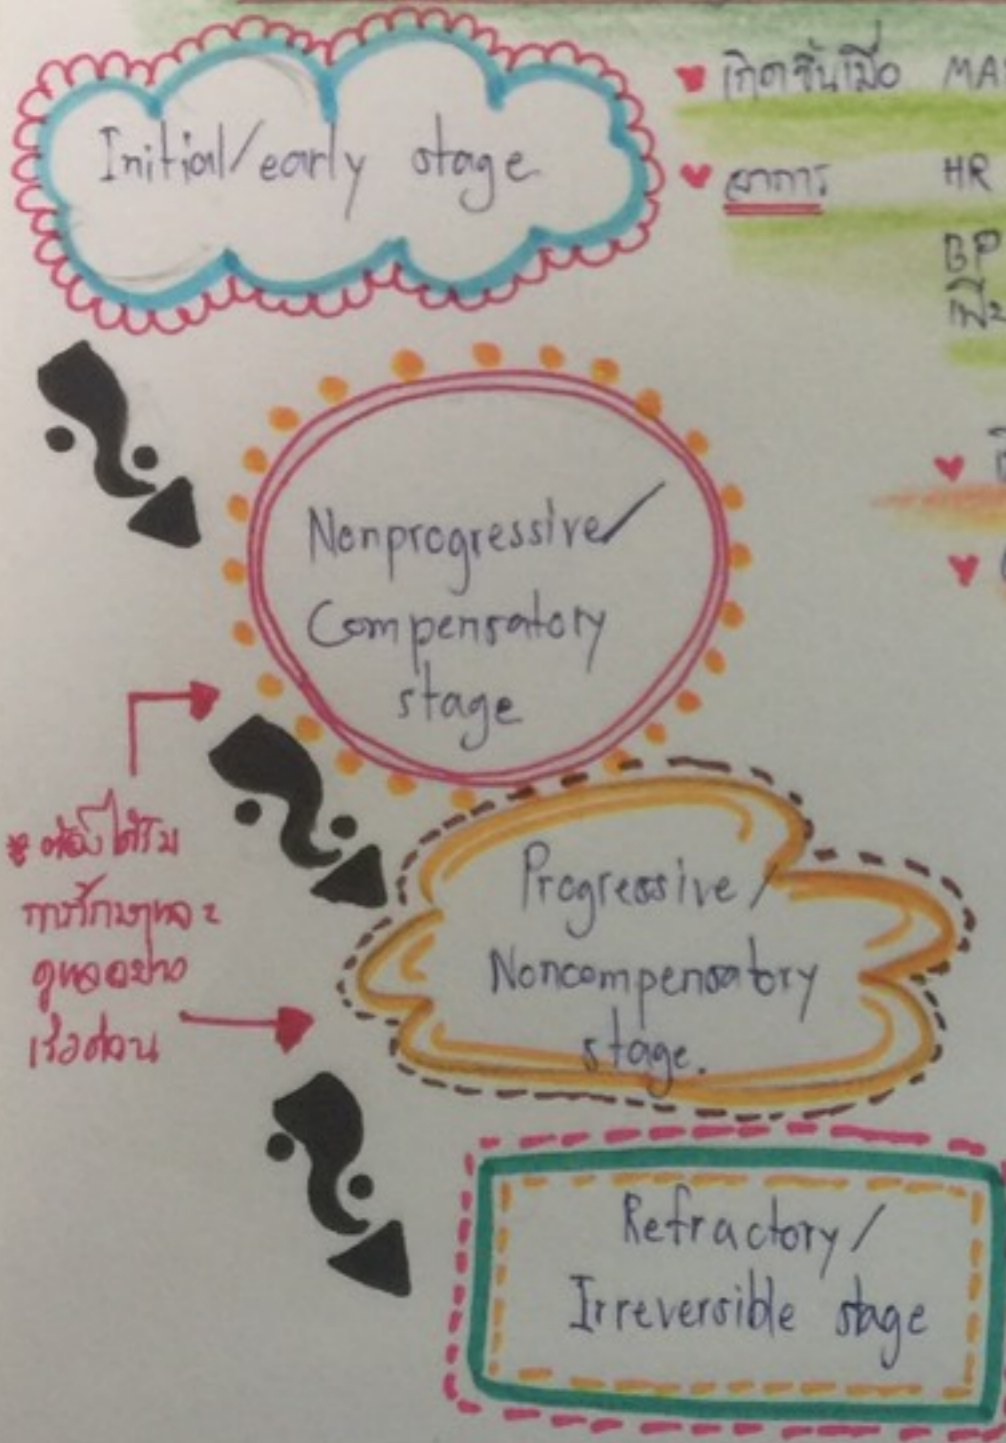 Initial/early stage
♥ เกิดขึ้นเมื่อ MA
♥ อาการ HR
BP
Nonprogressive/
Compensatory
stage
* ต้องได้รับ
การรักษาและ
ดูแลอย่าง
เร่งด่วน
Progressive/
Noncompensatory
stage.
Refractory/
Irreversible stage